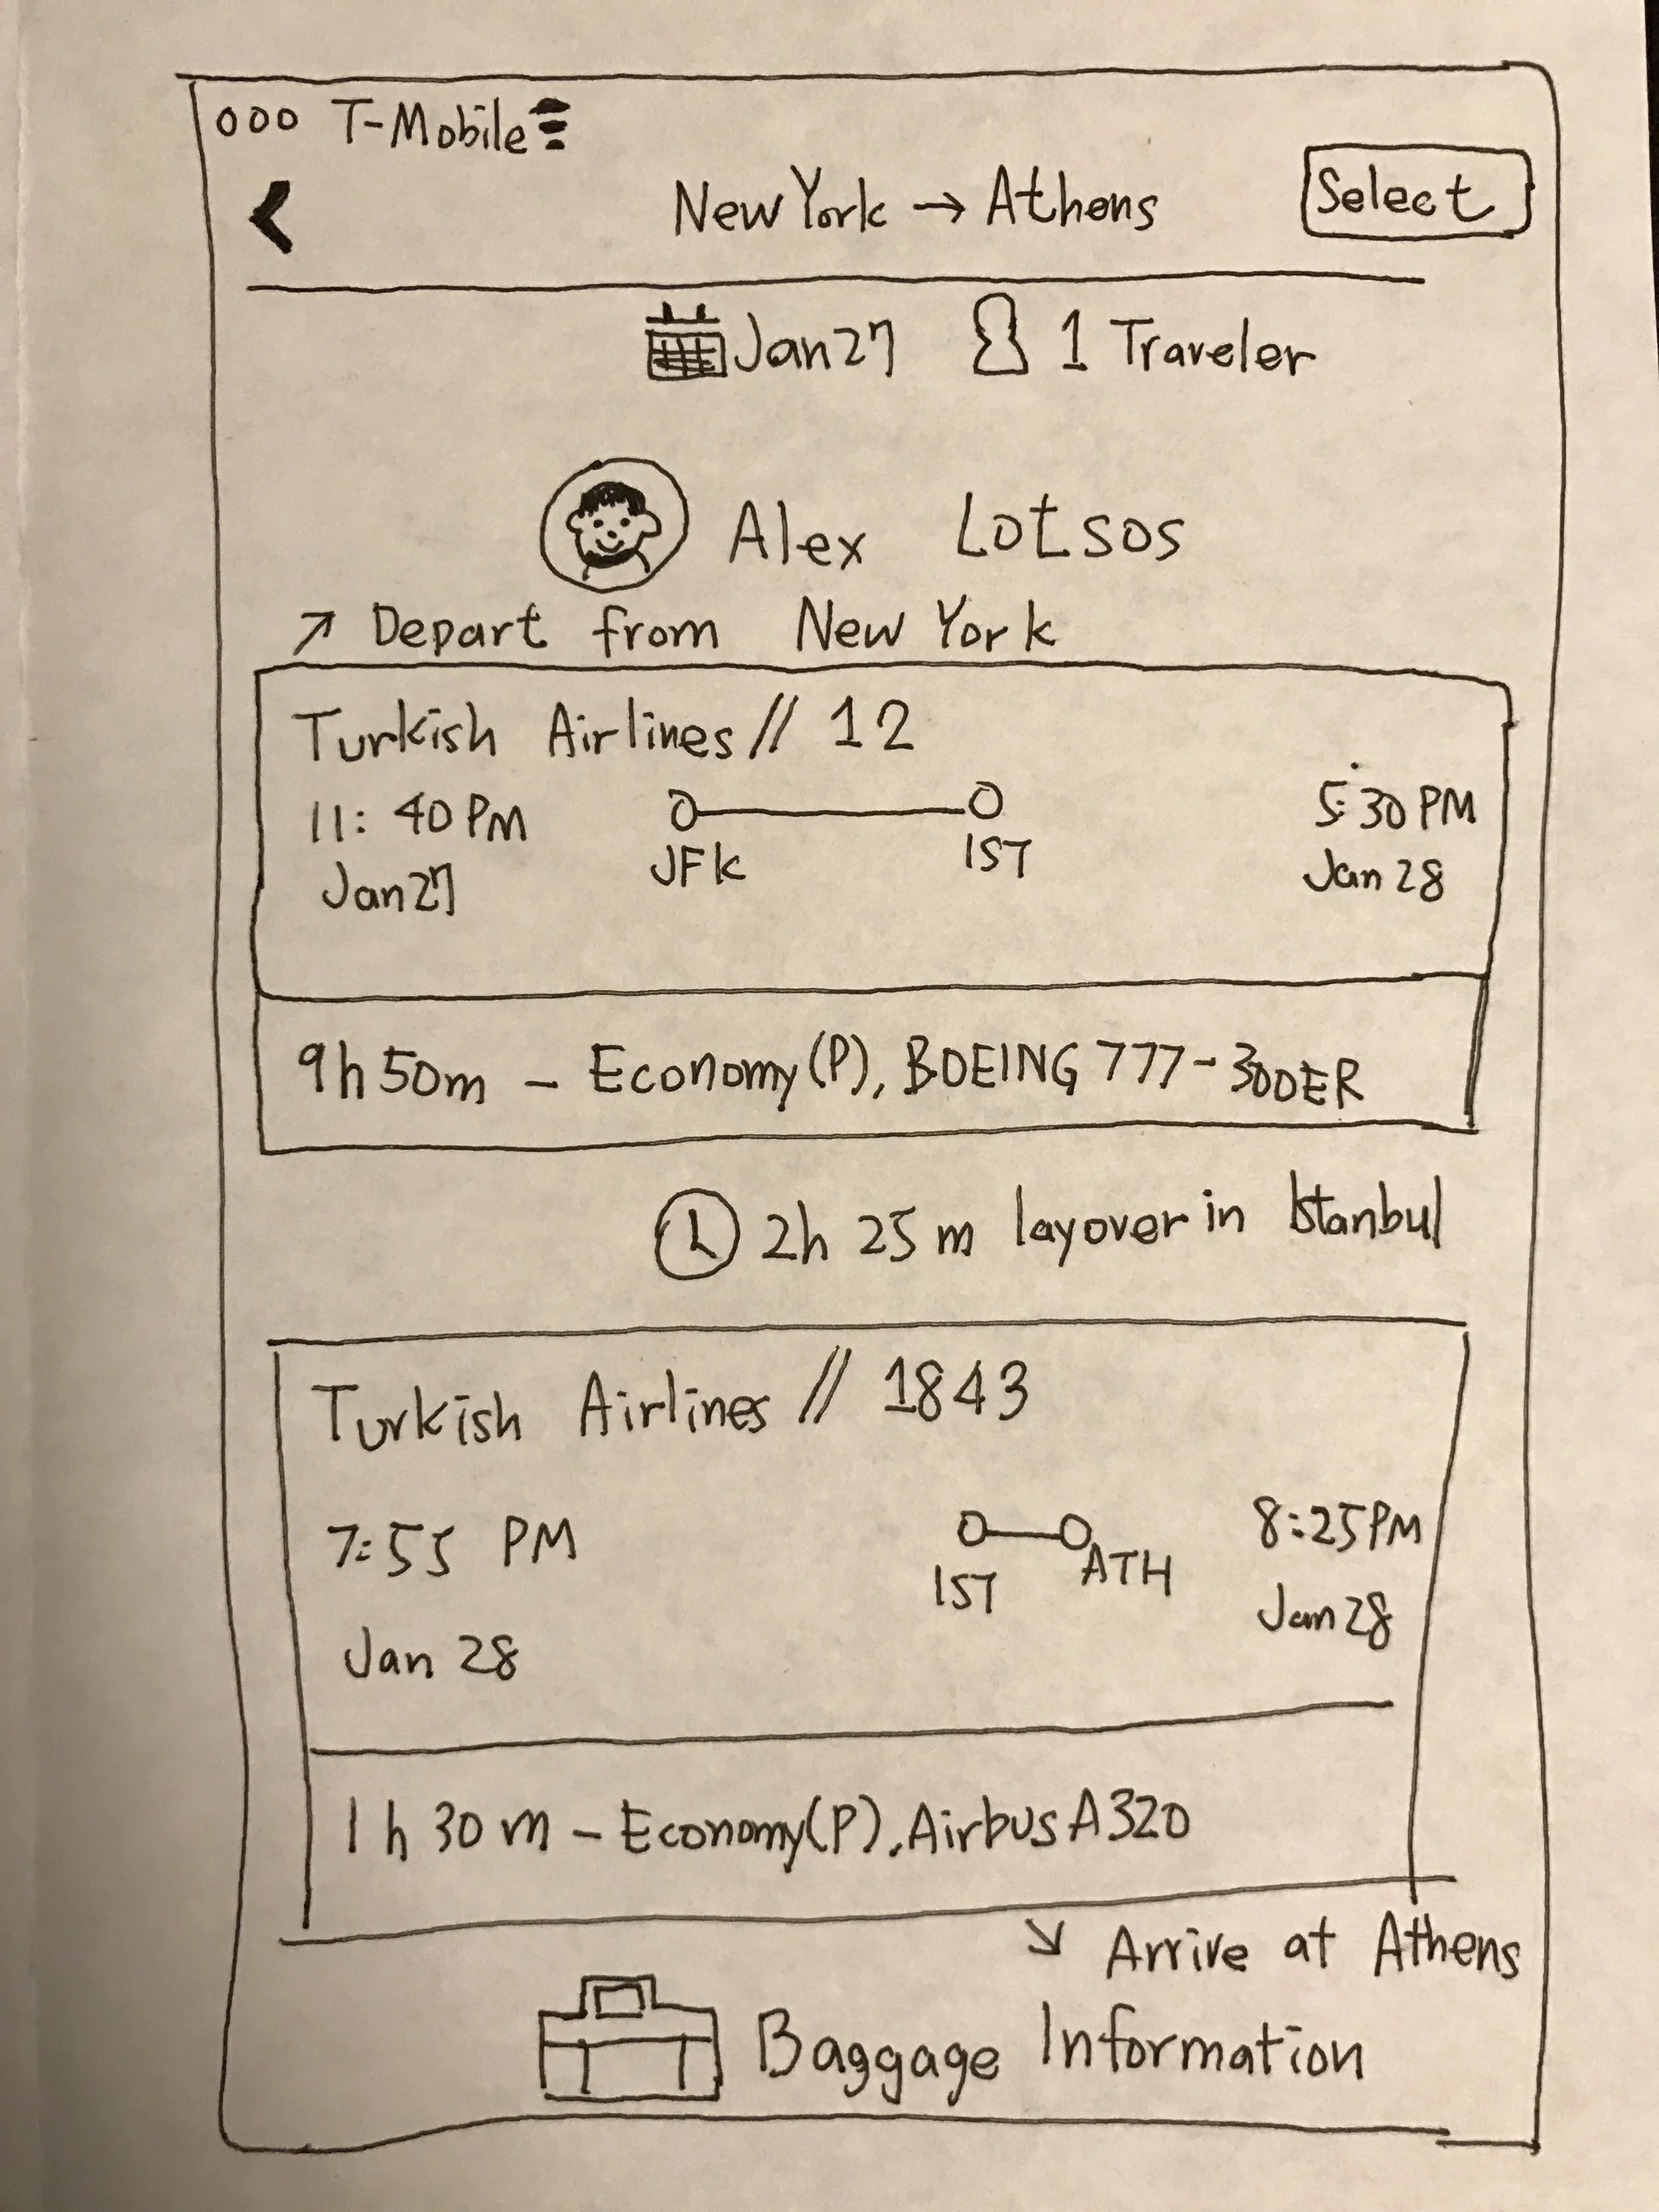 ooo T-Mobile
New York → Athens
Select
Jan 27 1 Traveler
Alex Lotsos
↗ Depart from New York
Turkish Airlines // 12
11:40 PM JFK IST 5:30 PM
Jan 27 Jan 28
9h 50m - Economy (P), BOEING 777-300ER
2h 25m layover in Istanbul
Turkish Airlines // 1843
7:55 PM IST ATH 8:25 PM
Jan 28 Jan 28
1h 30m - Economy (P), Airbus A320
↘ Arrive at Athens
Baggage Information